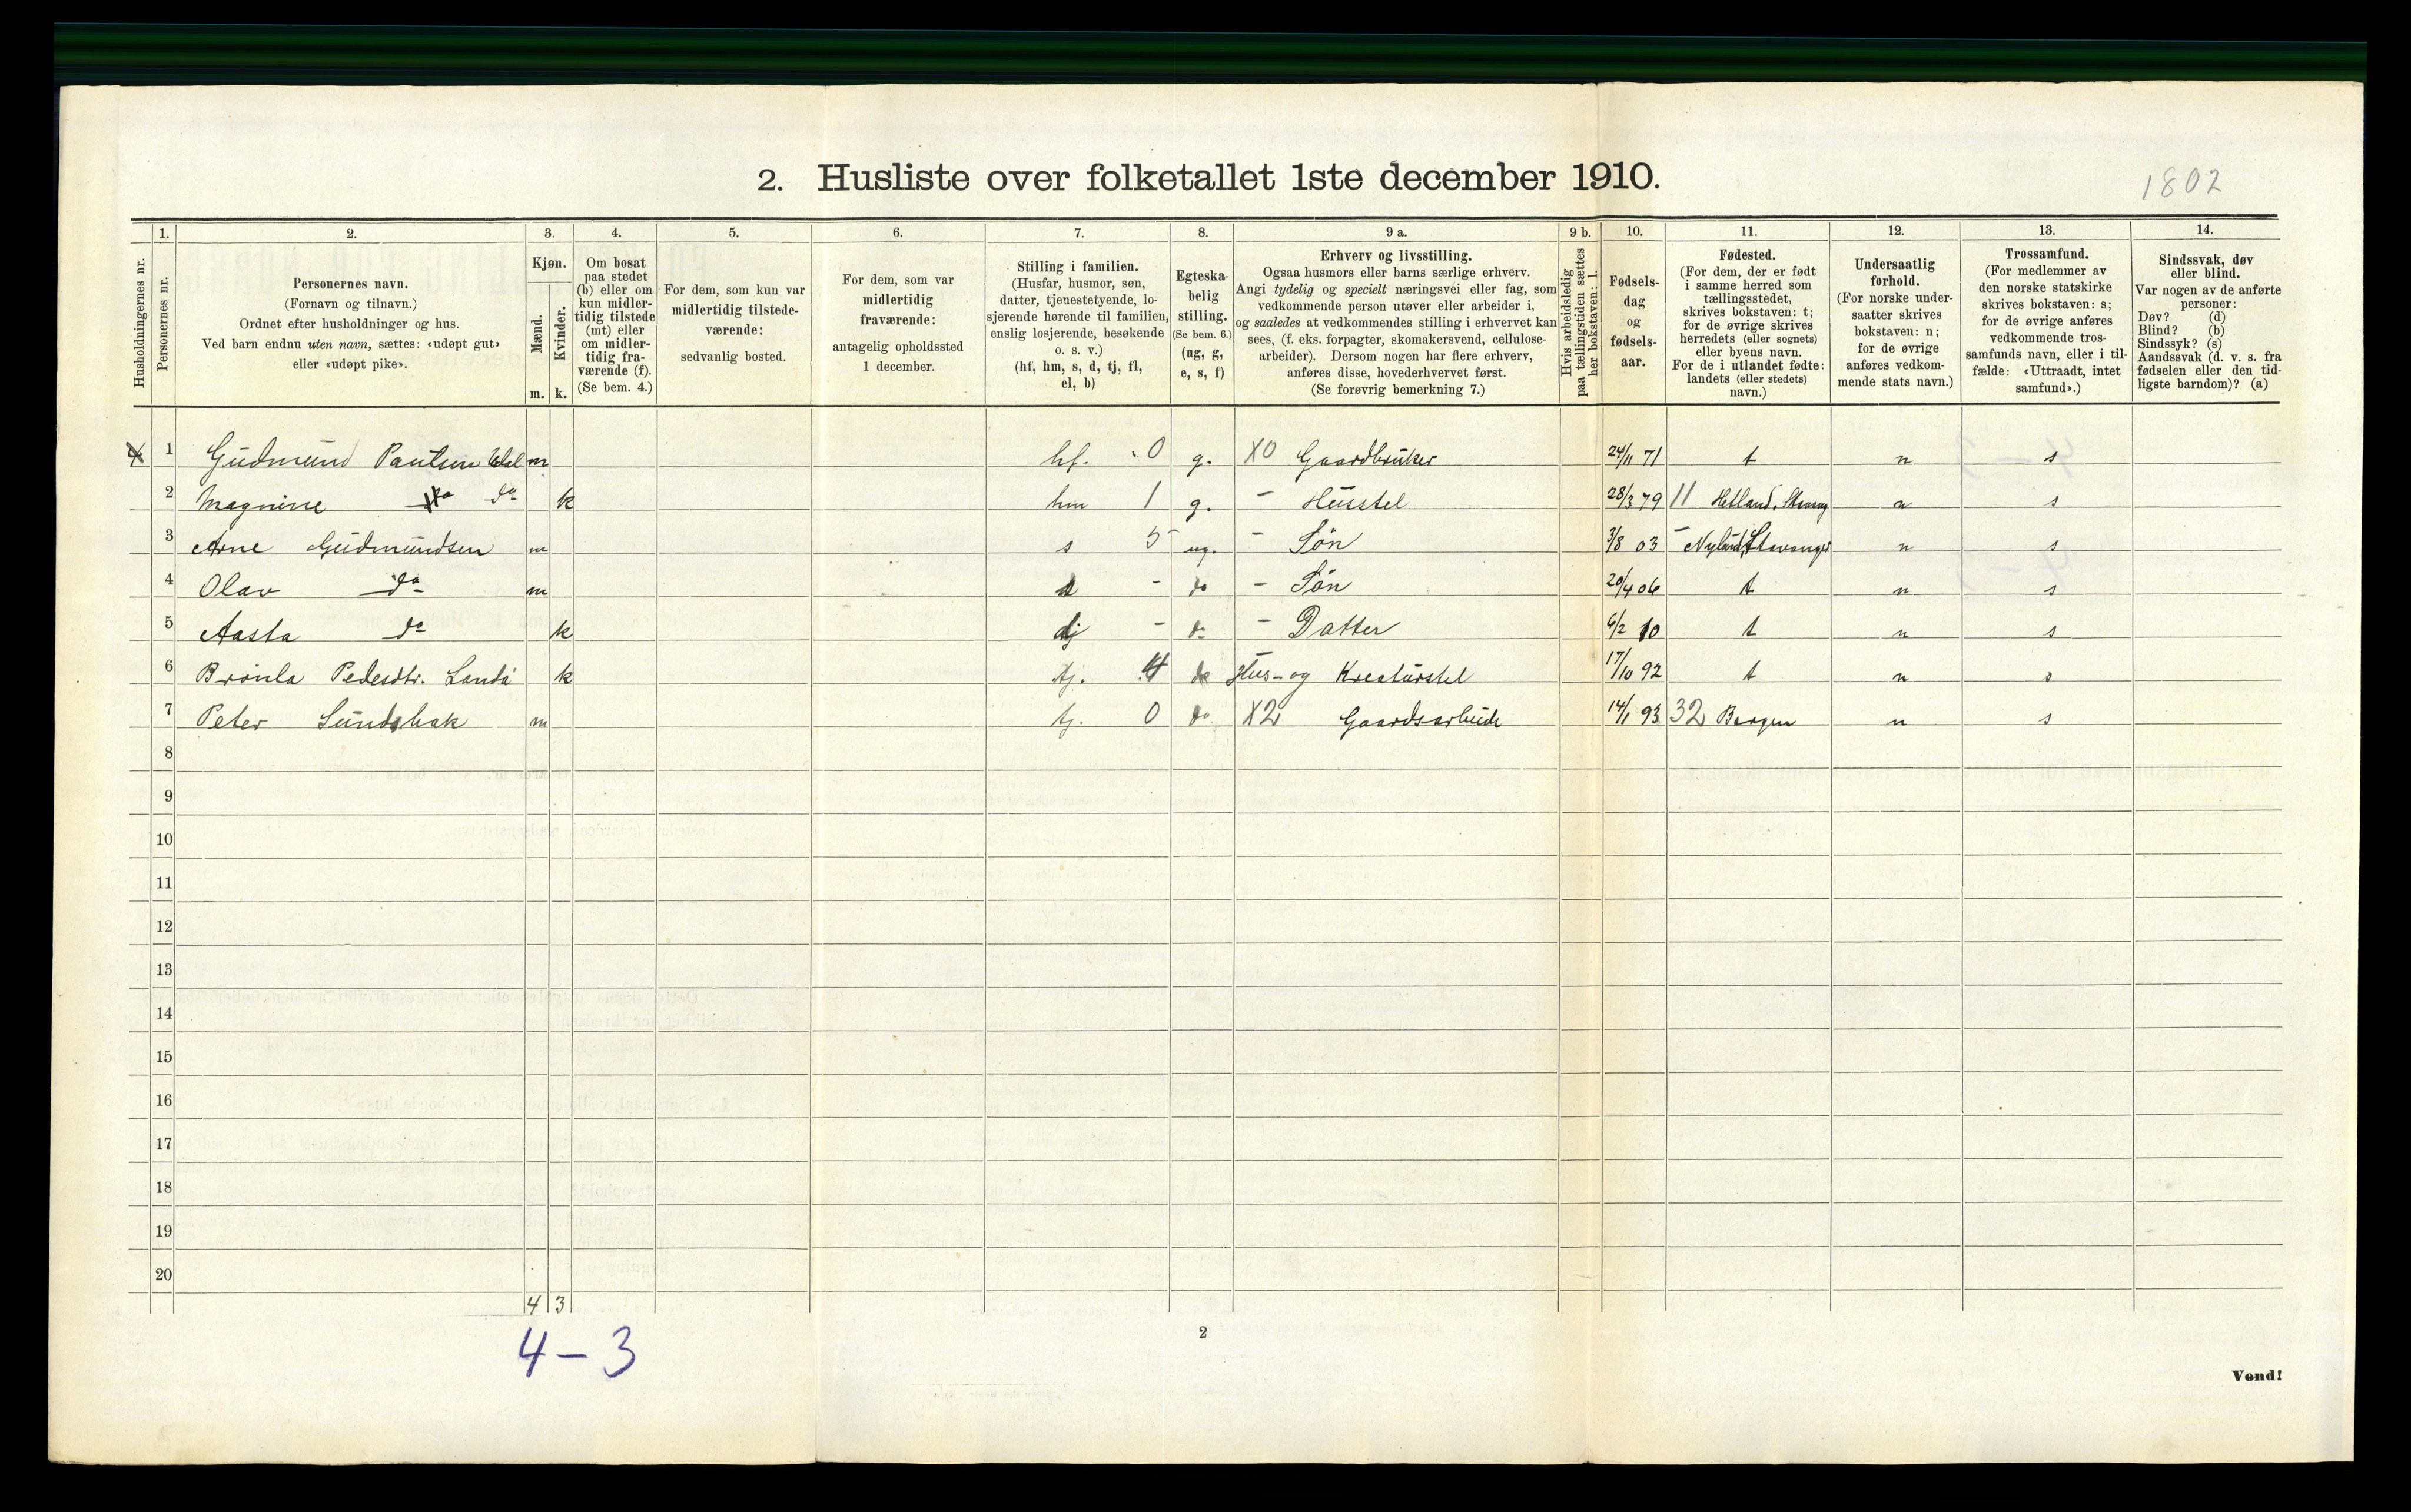 2. Husliste over folketallet 1ste december 1910.
1802
1. 2. 3. 4. 5. 6. 7. 8. 9 a. 9 b. 10. 11. 12. 13. 14.
Husholdningernes nr.
Personernes nr.
Personernes navn.
(Fornavn og tilnavn.)
Ordnet efter husholdninger og hus.
Ved barn endnu uten navn, sættes: «udøpt gut»
eller «udøpt pike».
Kjøn.
Mænd.
Kvinder.
m. k.
Om bosat
paa stedet
(b) eller om
kun midler-
tidig tilstede
(mt) eller
om midler-
tidig fra-
værende (f).
(Se bem. 4.)
For dem, som kun var
midlertidig tilstede-
værende:
sedvanlig bosted.
For dem, som var
midlertidig
fraværende:
antagelig opholdssted
1 december.
Stilling i familien.
(Husfar, husmor, søn,
datter, tjenestetyende, lo-
sjerende hørende til familien,
enslig losjerende, besøkende
o. s. v.)
(hf, hm, s, d, tj, fl,
el, b)
Egteska-
belig
stilling.
(Se bem. 6.)
(ug, g,
e, s, f)
Erhverv og livsstilling.
Ogsaa husmors eller barns særlige erhverv.
Angi tydelig og specielt næringsvei eller fag, som
vedkommende person utøver eller arbeider i,
og saaledes at vedkommendes stilling i erhvervet kan
sees, (f. eks. forpagter, skomakersvend, cellulose-
arbeider). Dersom nogen har flere erhverv,
anføres disse, hovederhvervet først.
(Se forøvrig bemerkning 7.)
Hvis arbeidsledig
paa tællingstiden sættes
her bokstaven: l.
Fødsels-
dag
og
fødsels-
aar.
Fødested.
(For dem, der er født
i samme herred som
tællingsstedet,
skrives bokstaven: t;
for de øvrige skrives
herredets (eller sognets)
eller byens navn.
For de i utlandet fødte:
landets (eller stedets)
navn.)
Undersaatlig
forhold.
(For norske under-
saatter skrives
bokstaven: n;
for de øvrige
anføres vedkom-
mende stats navn.)
Trossamfund.
(For medlemmer av
den norske statskirke
skrives bokstaven: s;
for de øvrige anføres
vedkommende tros-
samfunds navn, eller i til-
fælde: «Uttraadt, intet
samfund».)
Sindssvak, døv
eller blind.
Var nogen av de anførte
personer:
Døv? (d)
Blind? (b)
Sindssyk? (s)
Aandssvak (d. v. s. fra
fødselen eller den tid-
ligste barndom)? (a)
1 Gudmund m hf. 0 g. X0 Gaardbruker 24/11 71 t n s
2 Magnine do k hm 1 g. - Husstel 28/3 79 11 Hetland, n s
3 Arne Gudmundsen m s 5 ug. - Søn 3/8 03 - Stavanger n s
4 Olav do m s - do - Søn 20/4 06 t n s
5 Aasta do k - do - Datter 6/2 10 t n s
6 Pedersdtr. Landa k tj. 4 do Hus- og Kreaturstel 17/10 92 t n s
7 Peter m tj. 0 do X2 Gaardsarbeide 14/1 93 32 Bergen n s
8
9
10
11
12
13
14
15
16
17
18
19
20
4 3
4 – 3
2
Vend!